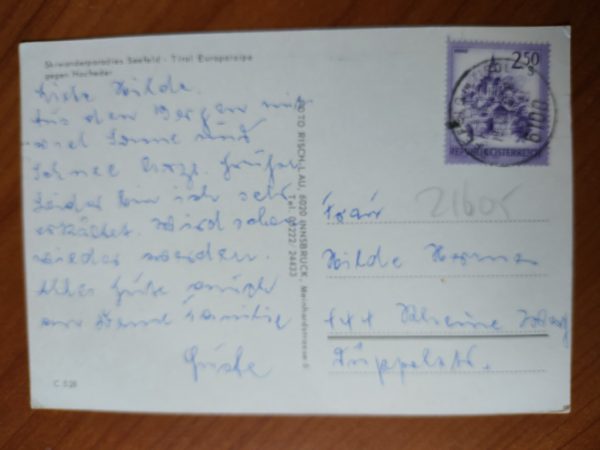 Skiwanderparadies Seefeld - Tirol Europaloipe
gegen Hocheder
Liebe Hilde.
Aus den Bergen mit
viel Sonne und
Schnee herzl. Grüße
Leider bin ich sehr
erkältet. Wird schon
wieder werden.
Alles Gute auch
an Deine Familie
FOTO RISCH-LAU, 6020 INNSBRUCK, Meinhardstrasse 5
Tel. 05222 24433
C 528
2.50
S
REPUBLIK ÖSTERREICH
6100
Frau
21605
Hilde
444 Rheine